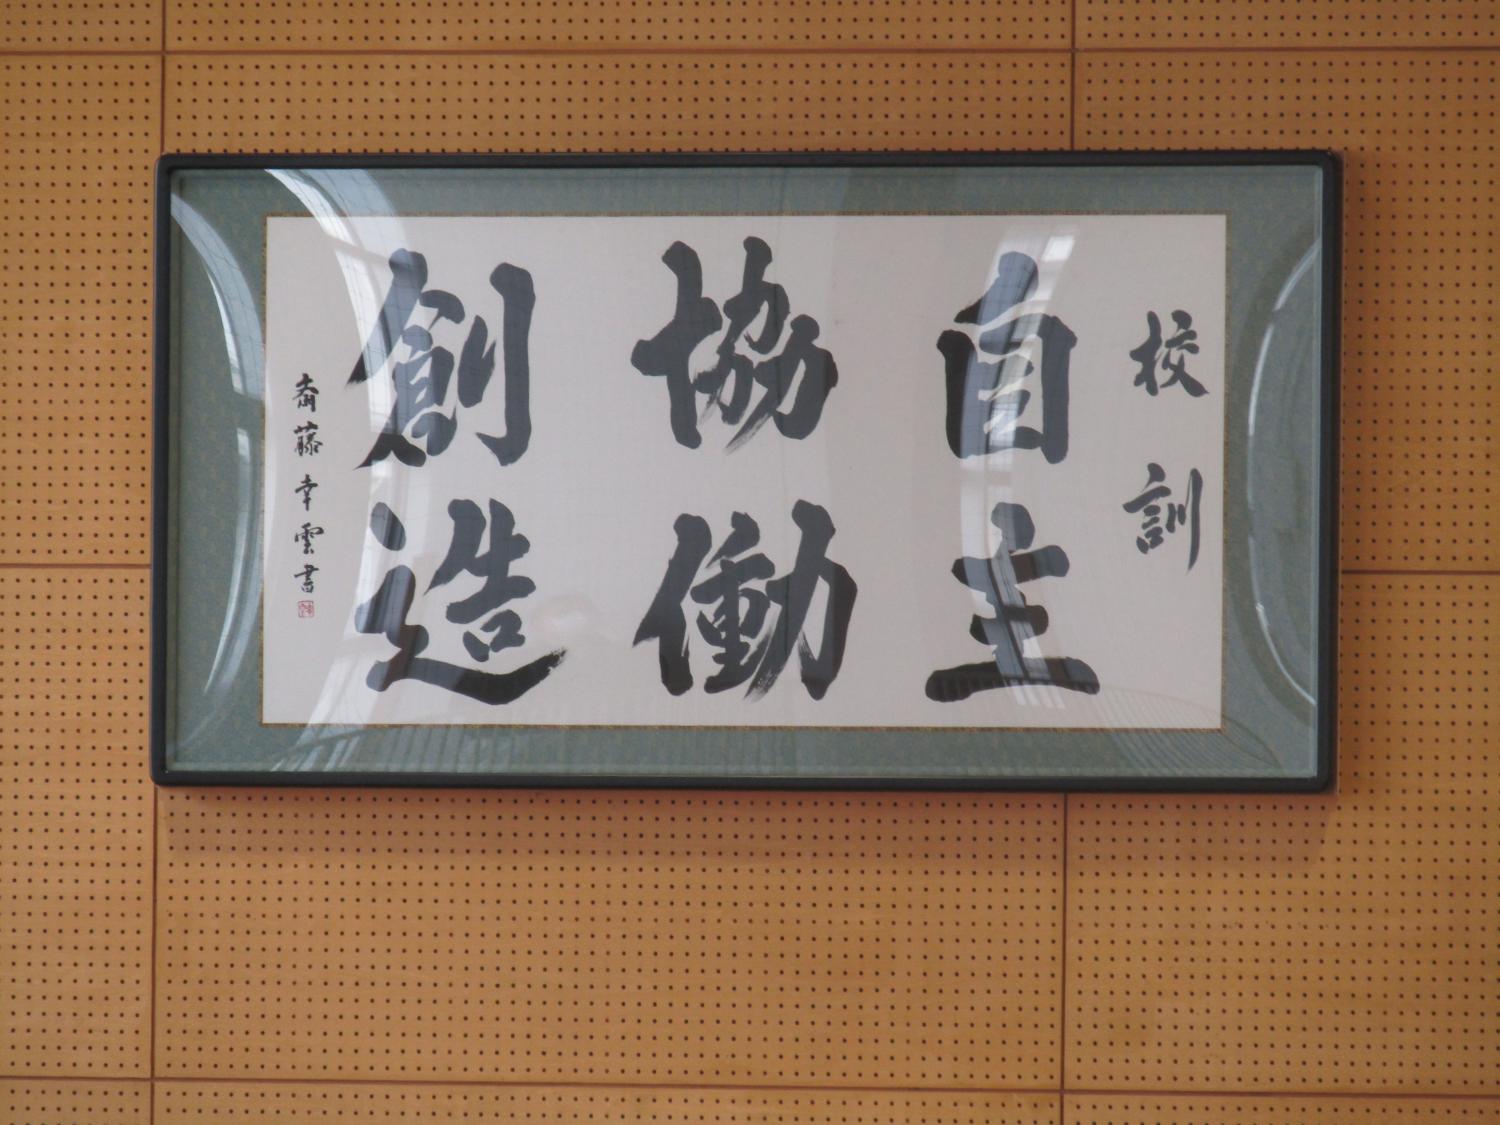 校訓
自主
協働
創造
斎藤幸雲書